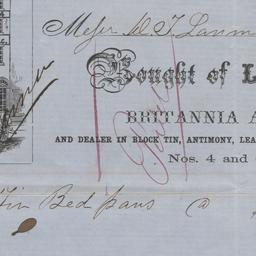 Messrs W. T. Lanm
Bought of L
BRITANNIA A
AND DEALER IN BLOCK TIN, ANTIMONY, LEA
Nos. 4 and
Tin Bed pans @